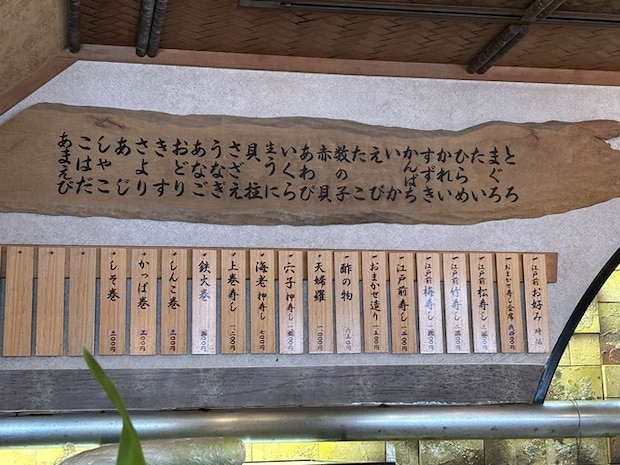 とろ
まぐろ
たい
ひらめ
かれい
すずき
かんぱち
いか
えび
たこ
数の子
赤貝
あわび
いくら
生うに
貝柱
さざえ
うなぎ
あなご
おどり
きす
さより
あじ
しゃこ
こはだ
あまえび
一江戸前お好み 時価
一おまかせ寿し会席
一江戸前松寿し
一江戸前竹寿し
一江戸前梅寿し
一江戸前寿し
一おまかせ造り
酢の物
天婦羅
穴子押寿し
海老押寿し 七〇〇円
上巻寿し 一二〇〇円
鉄火巻
しんこ巻
かっぱ巻
しそ巻